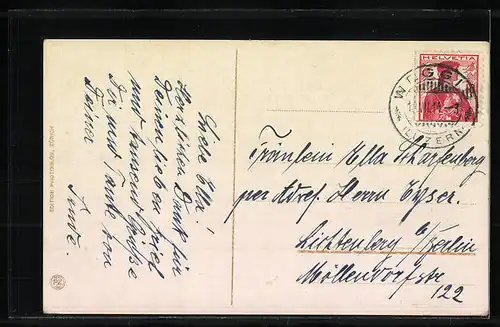 Liebe Ella!
Herzlichen Dank für
Deinen lieben Brief
und tausend Grüße
Dir und Tante von
Deiner
HELVETIA
WEGGIS
(LUZERN)
Fräulein Ella Scharfenberg
per Adr. Herrn Eyser.
Lichtenberg b/Berlin
Möllendorfstr
122
EDITION PHOTOGLOB, ZÜRICH
PZ